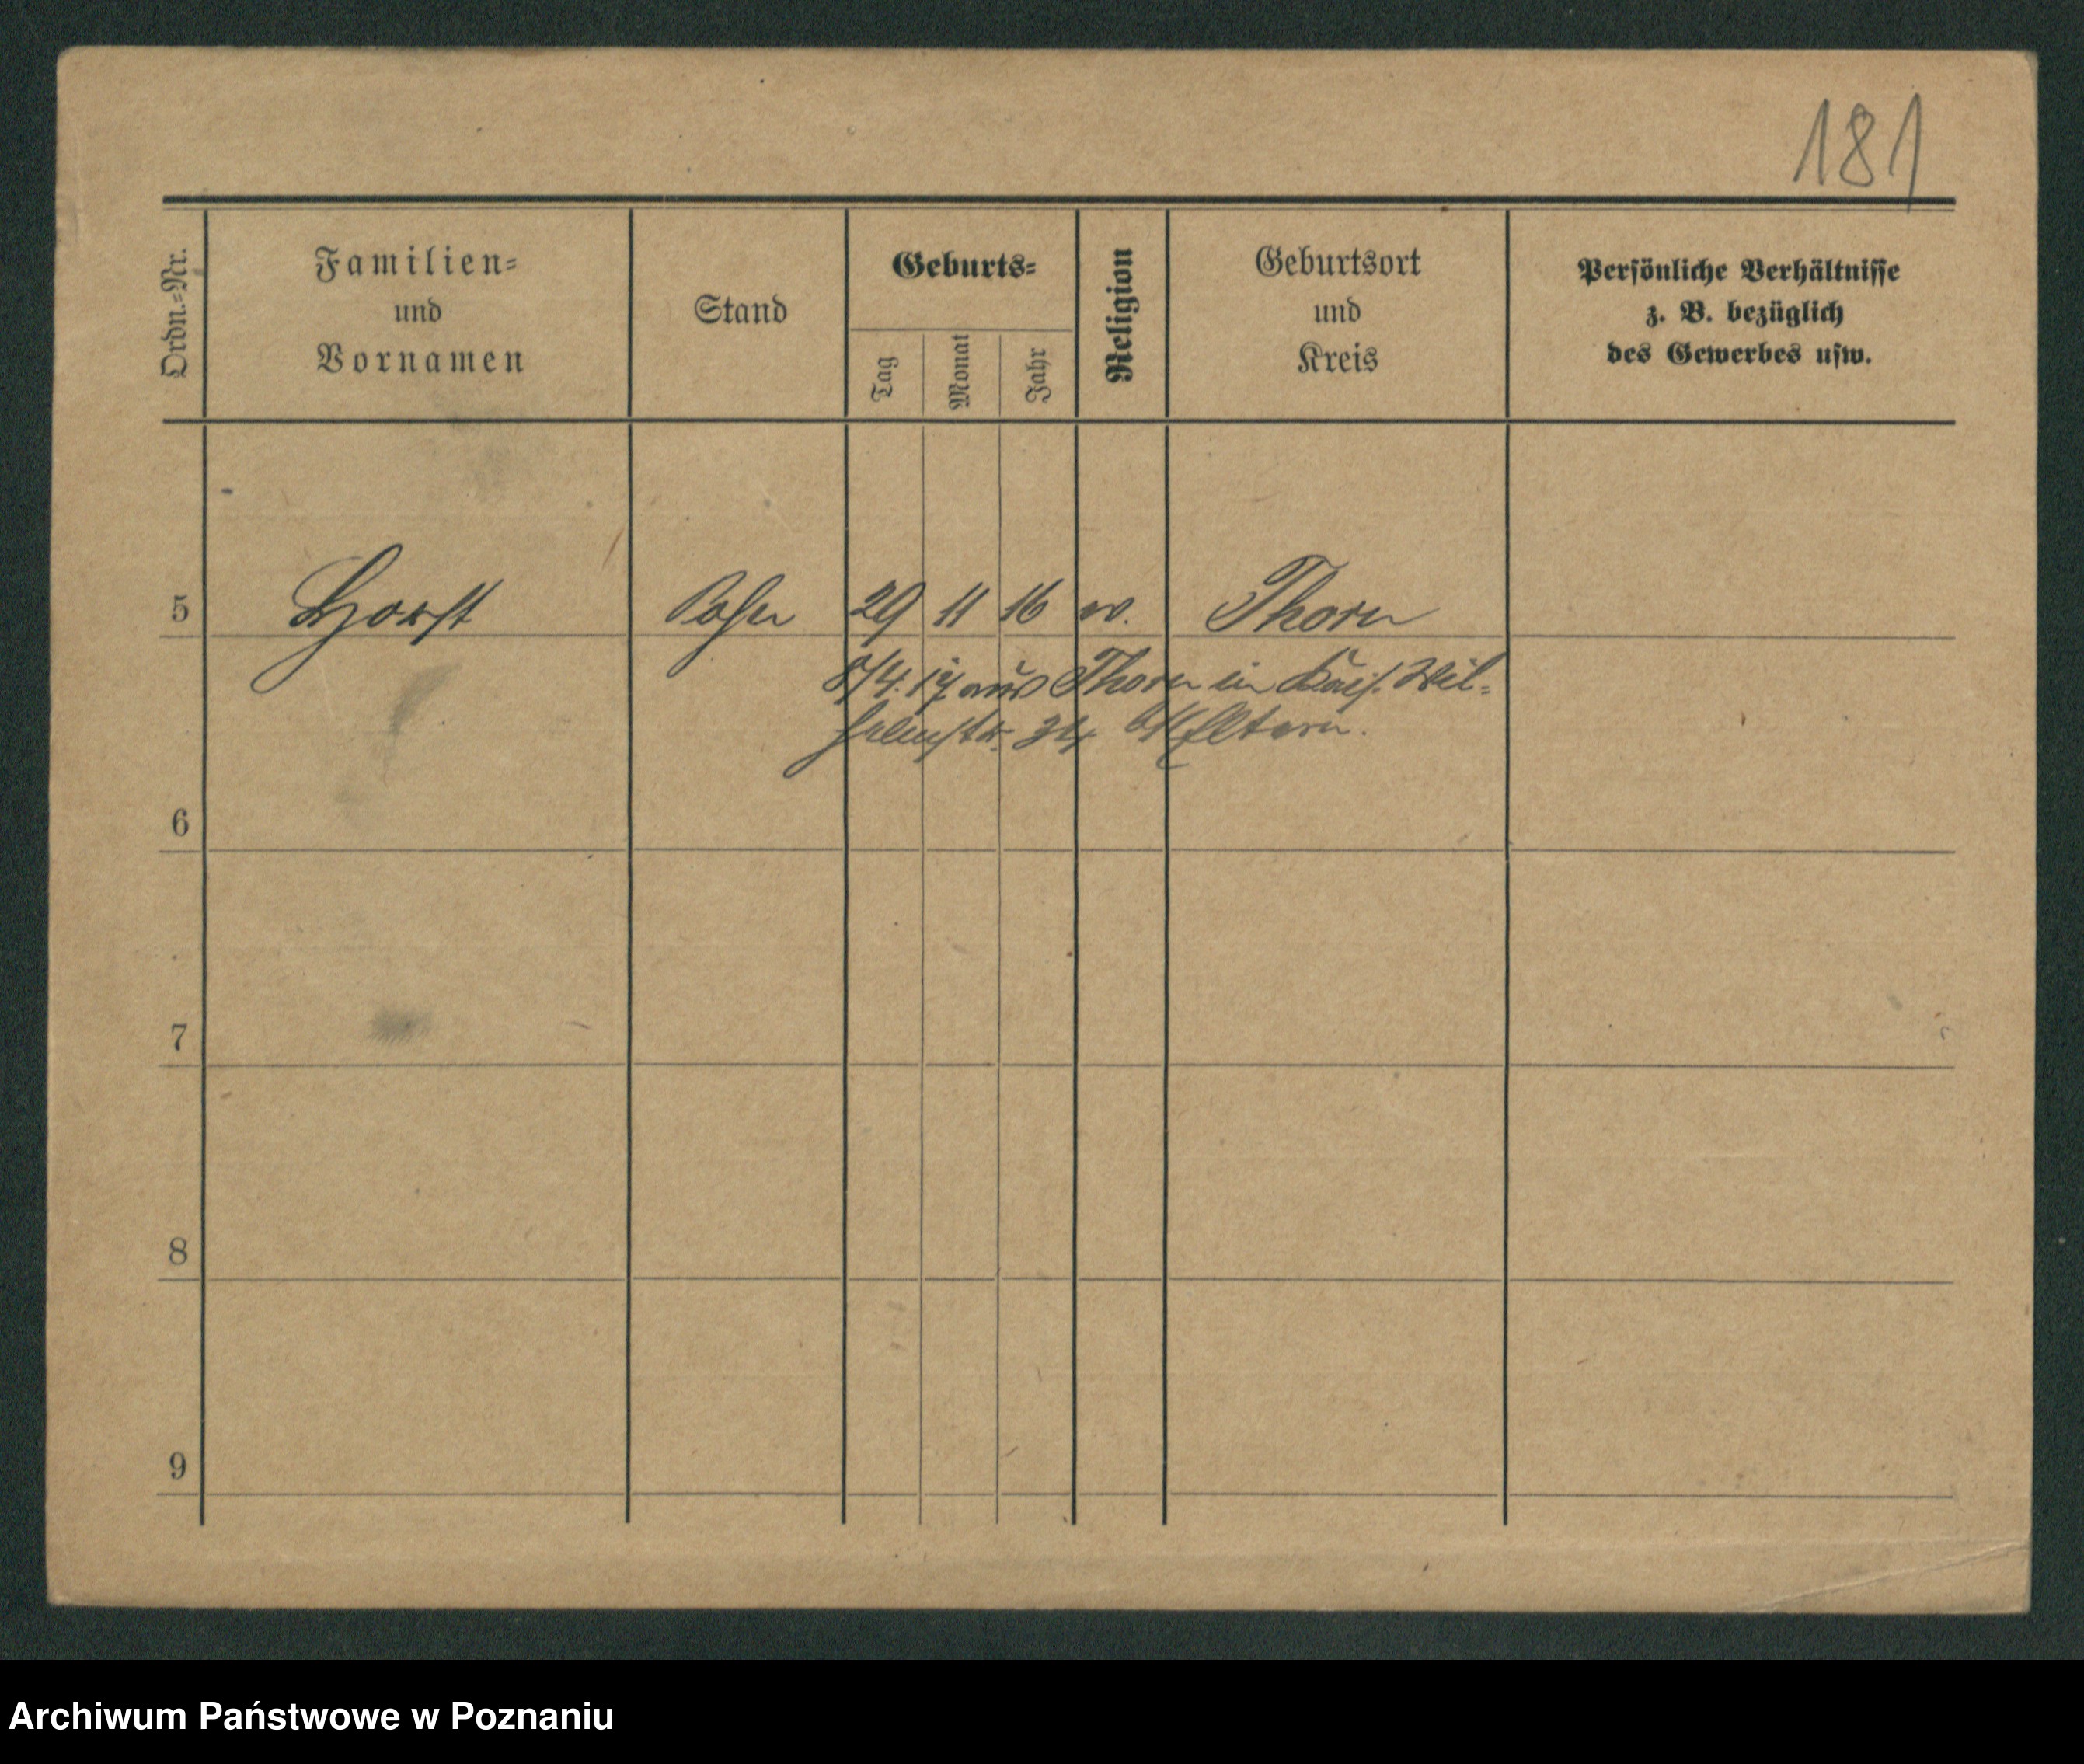 181
Ordn.=Nr.
Familien=
und
Vornamen
Stand
Geburts=
Tag
Monat
Jahr
Religion
Geburtsort
und
Kreis
Persönliche Verhältnisse
z. B. bezüglich
des Gewerbes usw.
5 Horst Sohn 29 11 16 ev. Thorn
8/4. 17 aus Thorn in Kais. Wil-
helmstr. 34 Eltern.
6
7
8
9
Archiwum Państwowe w Poznaniu